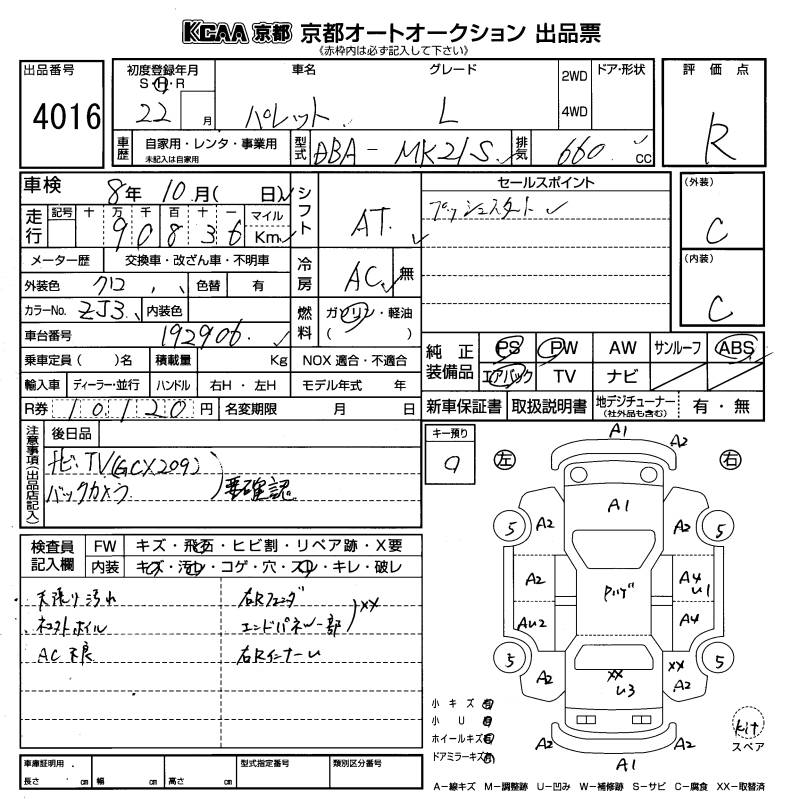 KCAA 京都 京都オートオークション 出品票
《赤枠内は必ず記入して下さい》
出品番号 4016
初度登録年月 S・H・R 22 月
車名 パレット
グレード L
2WD 4WD
ドア・形状
評価点 R
車歴 自家用・レンタ・事業用 未記入は自家用
型式 DBA-MK21S
排気 660 CC
車検 8年 10月( 日)
シフト AT
セールスポイント
プッシュスタート
(外装) C
(内装) C
走行 記号 十 万 千 百 十 一 マイル Km
90836
メーター歴 交換車・改ざん車・不明車
冷房 AC 無
外装色 クロ 色替 有
カラーNo. ZJ3 内装色
燃料 ガソリン・軽油 ( )
車台番号 192906
純正装備品 PS PW AW サンルーフ ABS
エアバック TV ナビ
乗車定員( )名 積載量 Kg NOX 適合・不適合
輸入車 ディーラー・並行 ハンドル 右H・左H モデル年式 年
新車保証書 取扱説明書 地デジチューナー (社外品も含む) 有・無
R券 10,120 円 名変期限 月 日
注意事項(出品店記入) 後日品
ナビ・TV(GCX209)
バックカメラ
要確認
キー預り 9
左 右
A1 A2
A1
5 A2 A2 5
A2 A4 U1
AU2 A4
5 A2 XX A2 5
XX U3
A2 A1 A2
検査員記入欄 FW キズ・飛石・ヒビ割・リペア跡・X要
内装 キズ・汚レ・コゲ・穴・スレ・キレ・破レ
天張り汚れ 右Rフェンダ
ホイル エンドパネル一部 XX
AC不良 右RインナーU
小キズ有
小U有
ホイールキズ有
ドアミラーキズ有
kit スペア
車庫証明用 長さ cm 幅 cm 高さ cm
型式指定番号 類別区分番号
A-線キズ M-調整跡 U-凹み W-補修跡 S-サビ C-腐食 XX-取替済